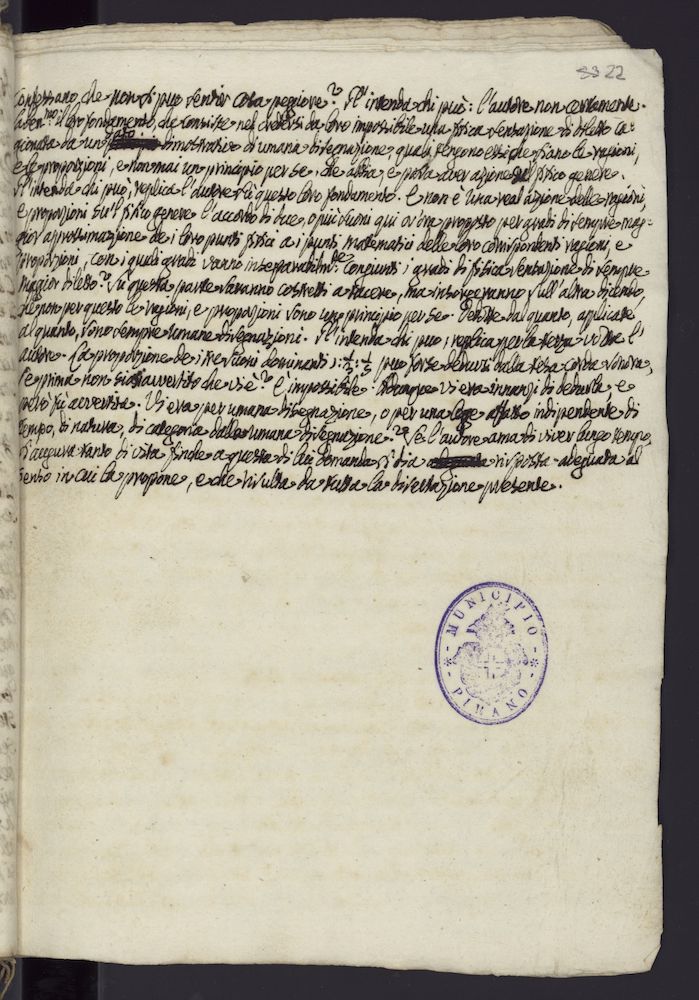 33 22
confessano, che non si può sentir cosa peggiore? Il intenda chi può: l'autore non certamente.
il loro fondamento, che consiste nel credersi da loro impossibile una fisica sensazione di diletto ca-
gionata da un dimostrativo di umana disegnazione, quali tengono essi che siano le ragioni,
e le proporzioni, e non mai un principio per se, che abbia, e possa aver azione sul fisico genere.
Il intenda chi può, replica l'autore sù questo loro fondamento. E non è una real azione delle ragioni,
e proporzioni sù 'l fisico genere l'accordo di due, o più suoni qui sopra proposto per gradi di sempre mag-
gior approssimazione de i loro punti fisici a i punti matematici delle loro corrispondenti ragioni, e
proporzioni, con i quali gradi vanno inseparabilm.te congiunti i gradi di fisica sensazione di sempre
maggior diletto? Sù questa parte saranno costretti a tacere, ma insorgeranno sull'altra dicendo,
che non per questo le ragioni, e proporzioni sono un principio per se. Dedotte da quanto, applicate
al quanto, sono sempre umane disegnazioni. Il intenda chi può, replica per la terza volta l'
autore. La proporzione de i tre suoni dominanti 1: 1/3: 1/5 può forse dedursi dalla tesa corda sonora,
se prima non sia avvertito che vi è? E impossibile. Dunque vi era innanzi di dedurla, e
averla avvertita. Vi era per umana disegnazione, o per una legge affatto indipendente di
tempo, di natura, di categoria dalla umana disegnazione? Se l'autore ama di viver lungo tempo,
si augura tanto di vita finche a questa di lui domanda si dia risposta adeguata al
senso in cui la propone, e che risulta da tutta la dissertazione presente.
MUNICIPIO
PIRANO